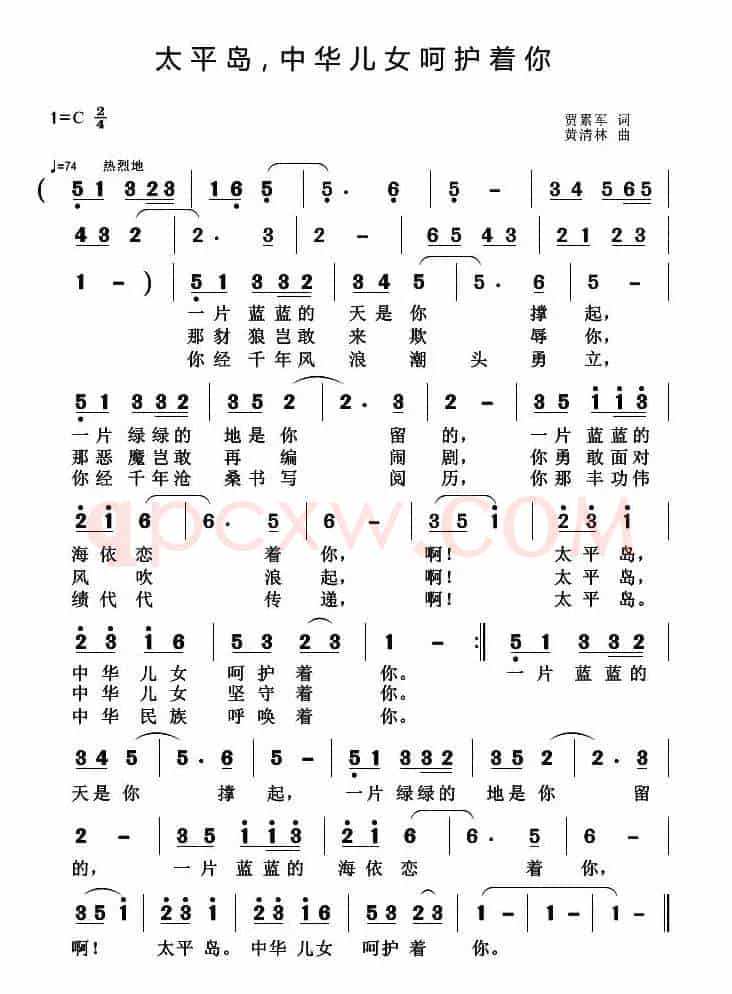 太平岛,中华儿女呵护着你
1=C 2/4
贾素军 词
黄清林 曲
♩=74 热烈地
( 5 1 3 2 3 | 1 6 5 | 5 · 6 | 5 - | 3 4 5 6 5 |
4 3 2 | 2 · 3 | 2 - | 6 5 4 3 | 2 1 2 3 |
1 - ) | 5 1 3 3 2 | 3 4 5 | 5 · 6 | 5 - |
一片蓝蓝的 天是你 撑起,
那豺狼岂敢 来欺 辱你,
你经千年风 浪潮头勇立,
5 1 3 3 2 | 3 5 2 | 2 · 3 | 2 - | 3 5 1 1 3 |
一片绿绿的 地是你 留的, 一片蓝蓝的
那恶魔岂敢 再编 闹剧, 你勇敢面对
你经千年沧 桑书写 阅历, 你那丰功伟
2 1 6 | 6 · 5 | 6 - | 3 5 1 | 2 3 1 |
海依恋 着你, 啊! 太平岛,
风吹 浪起, 啊! 太平岛,
绩代代 传递, 啊! 太平岛。
2 3 1 6 | 5 3 2 3 | 1 - :‖ 5 1 3 3 2 |
中华儿女 呵护着 你。 一片蓝蓝的
中华儿女 坚守着 你。
中华民族 呼唤着 你。
3 4 5 | 5 · 6 | 5 - | 5 1 3 3 2 | 3 5 2 | 2 · 3 |
天是你 撑起, 一片绿绿的 地是你 留
2 - | 3 5 1 1 3 | 2 1 6 | 6 · 5 | 6 - |
的, 一片蓝蓝的 海依恋 着你,
3 5 1 | 2 3 1 | 2 3 1 6 | 5 3 2 3 | 1 - | 1 - ‖
啊! 太平岛。 中华儿女 呵护着 你。
qpcxw.COM